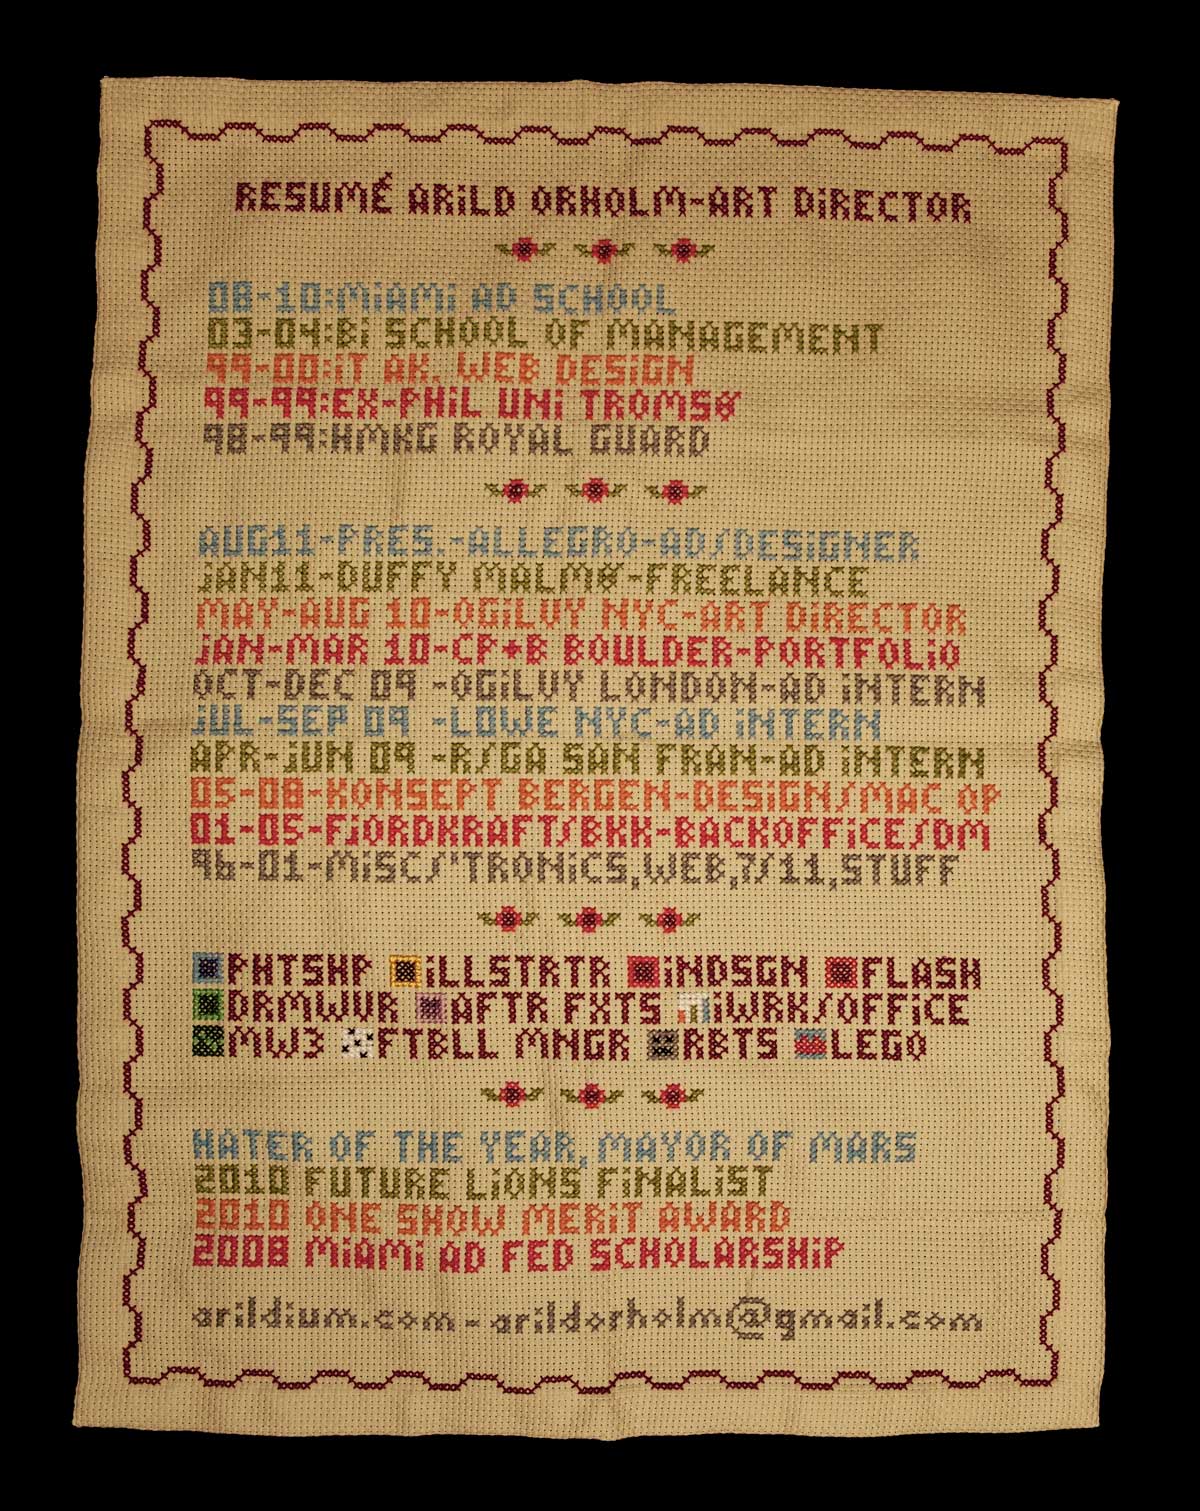 RESUMÉ ARiLD ORHOLM-ART DiRECTOR
08-10:MiAMi AD SCHOOL
03-04:Bi SCHOOL OF MANAGEMENT
99-00:iT AK. WEB DESiGN
99-99:EX-PHiL UNi TROMSØ
98-99:HMKG ROYAL GUARD
AUG11-PRES.-ALLEGRO-AD/DESiGNER
jAN11-DUFFY MALMØ-FREELANCE
MAY-AUG 10-OGiLVY NYC-ART DiRECTOR
jAN-MAR 10-CP+B BOULDER-PORTFOLiO
OCT-DEC 09 -OGiLVY LONDON-AD iNTERN
jUL-SEP 09 -LOWE NYC-AD iNTERN
APR-jUN 09 -R/GA SAN FRAN-AD iNTERN
05-08-KONSEPT BERGEN-DESiGN/MAC OP
01-05-FjORDKRAFT/BKK-BACKOFFiCE/DM
96-01-MiSC/'TRONiCS,WEB,7/11,STUFF
PHTSHP iLLSTRTR iNDSGN FLASH
DRMWVR AFTR FXTS iWRK/OFFiCE
MW3 FTBLL MNGR RBTS LEGO
HATER OF THE YEAR, MAYOR OF MARS
2010 FUTURE LiONS FiNALiST
2010 ONE SHOW MERiT AWARD
2008 MiAMi AD FED SCHOLARSHiP
arildium.com - arildorholm@gmail.com